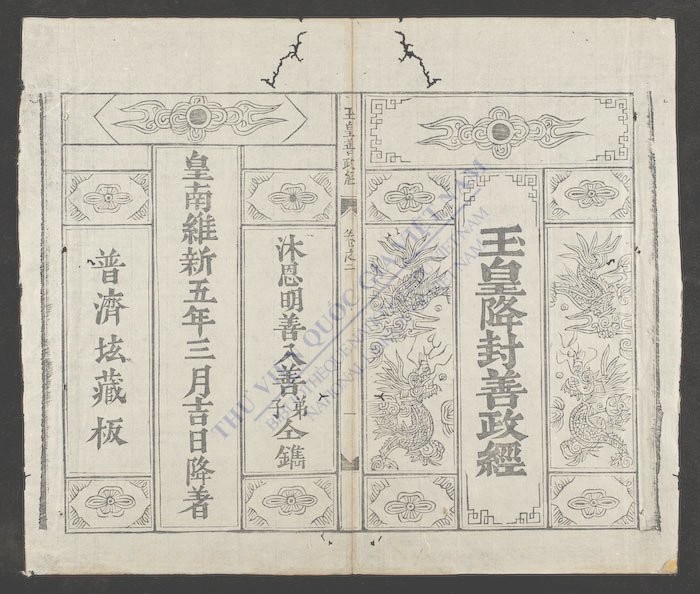 玉皇降封善政經
玉皇善政經
沐恩明善入善弟子仝鐫
皇南維新五年三月吉日降著
普濟坛藏板
THƯ VIỆN QUỐC GIA VIỆT NAM
BIBLIOTHÈQUE NATIONALE DU VIETNAM
NATIONAL LIBRARY OF VIETNAM